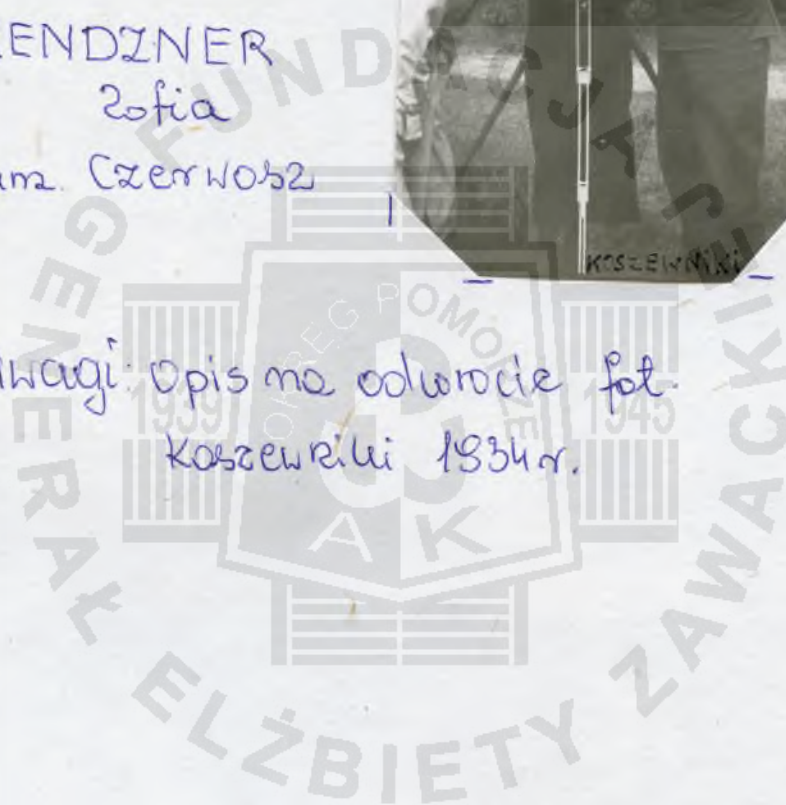 ENDZNER
Zofia
zam. Czerwosz
KOSZEWNIKI
uwagi: opis na odwrocie fot.
Koszewniki 1934 r.
FUNDACJA GENERAŁ ELŻBIETY ZAWACKIEJ
OKRĘG POMORZE
1939 1945
AK